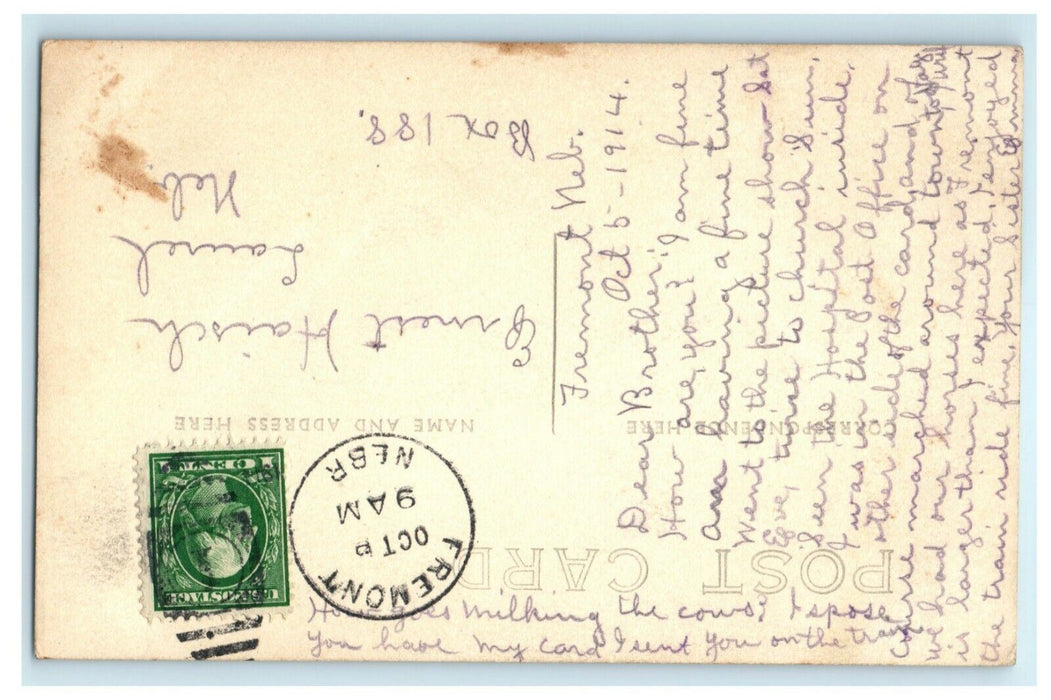 POST CARD
CORRESPONDENCE HERE
NAME AND ADDRESS HERE
U.S. POSTAGE
FREMONT
OCT
9 AM
NEBR
Ernest Haisch
Laurel
Neb
Box 188.
Fremont Neb.
Oct 5-1914.
Dear Brother; I am fine
How are you? I am fine
am having a fine time
Went to the picture show Sat
Eve, twice to church Sun,
Seen the Hospital inside,
I was in the Post Office on
other side of the card, and
we marched around town
We had our horses here as Fremont
is larger than I expected, I enjoyed
the train ride fine, your Sister Emma
goes milking the cows? I spose
You have my card I sent you on the train